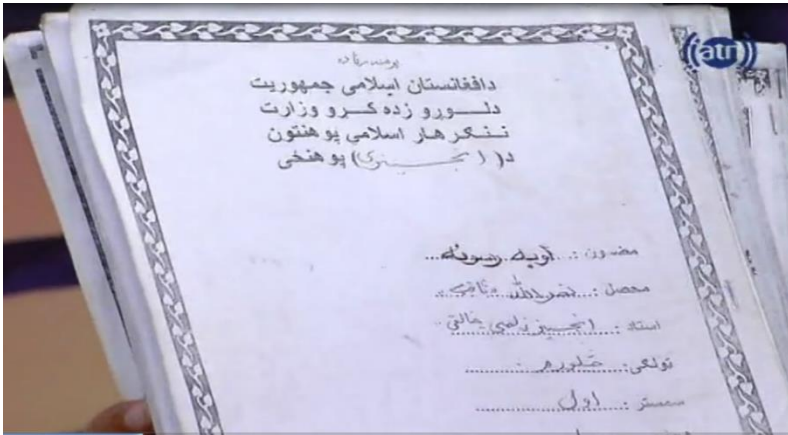 (atn)
دافغانستان اسلامی جمهوریت
دلوړو زده کړو وزارت
ننگرهار اسلامی پوهنتون
د( انجنیری) پوهنځی
مضمون : اوبه رسونه
محصل : نصرالله
استاد : انجنیر زلمی خالقی
ټولگی: څلورم
سمستر : اول